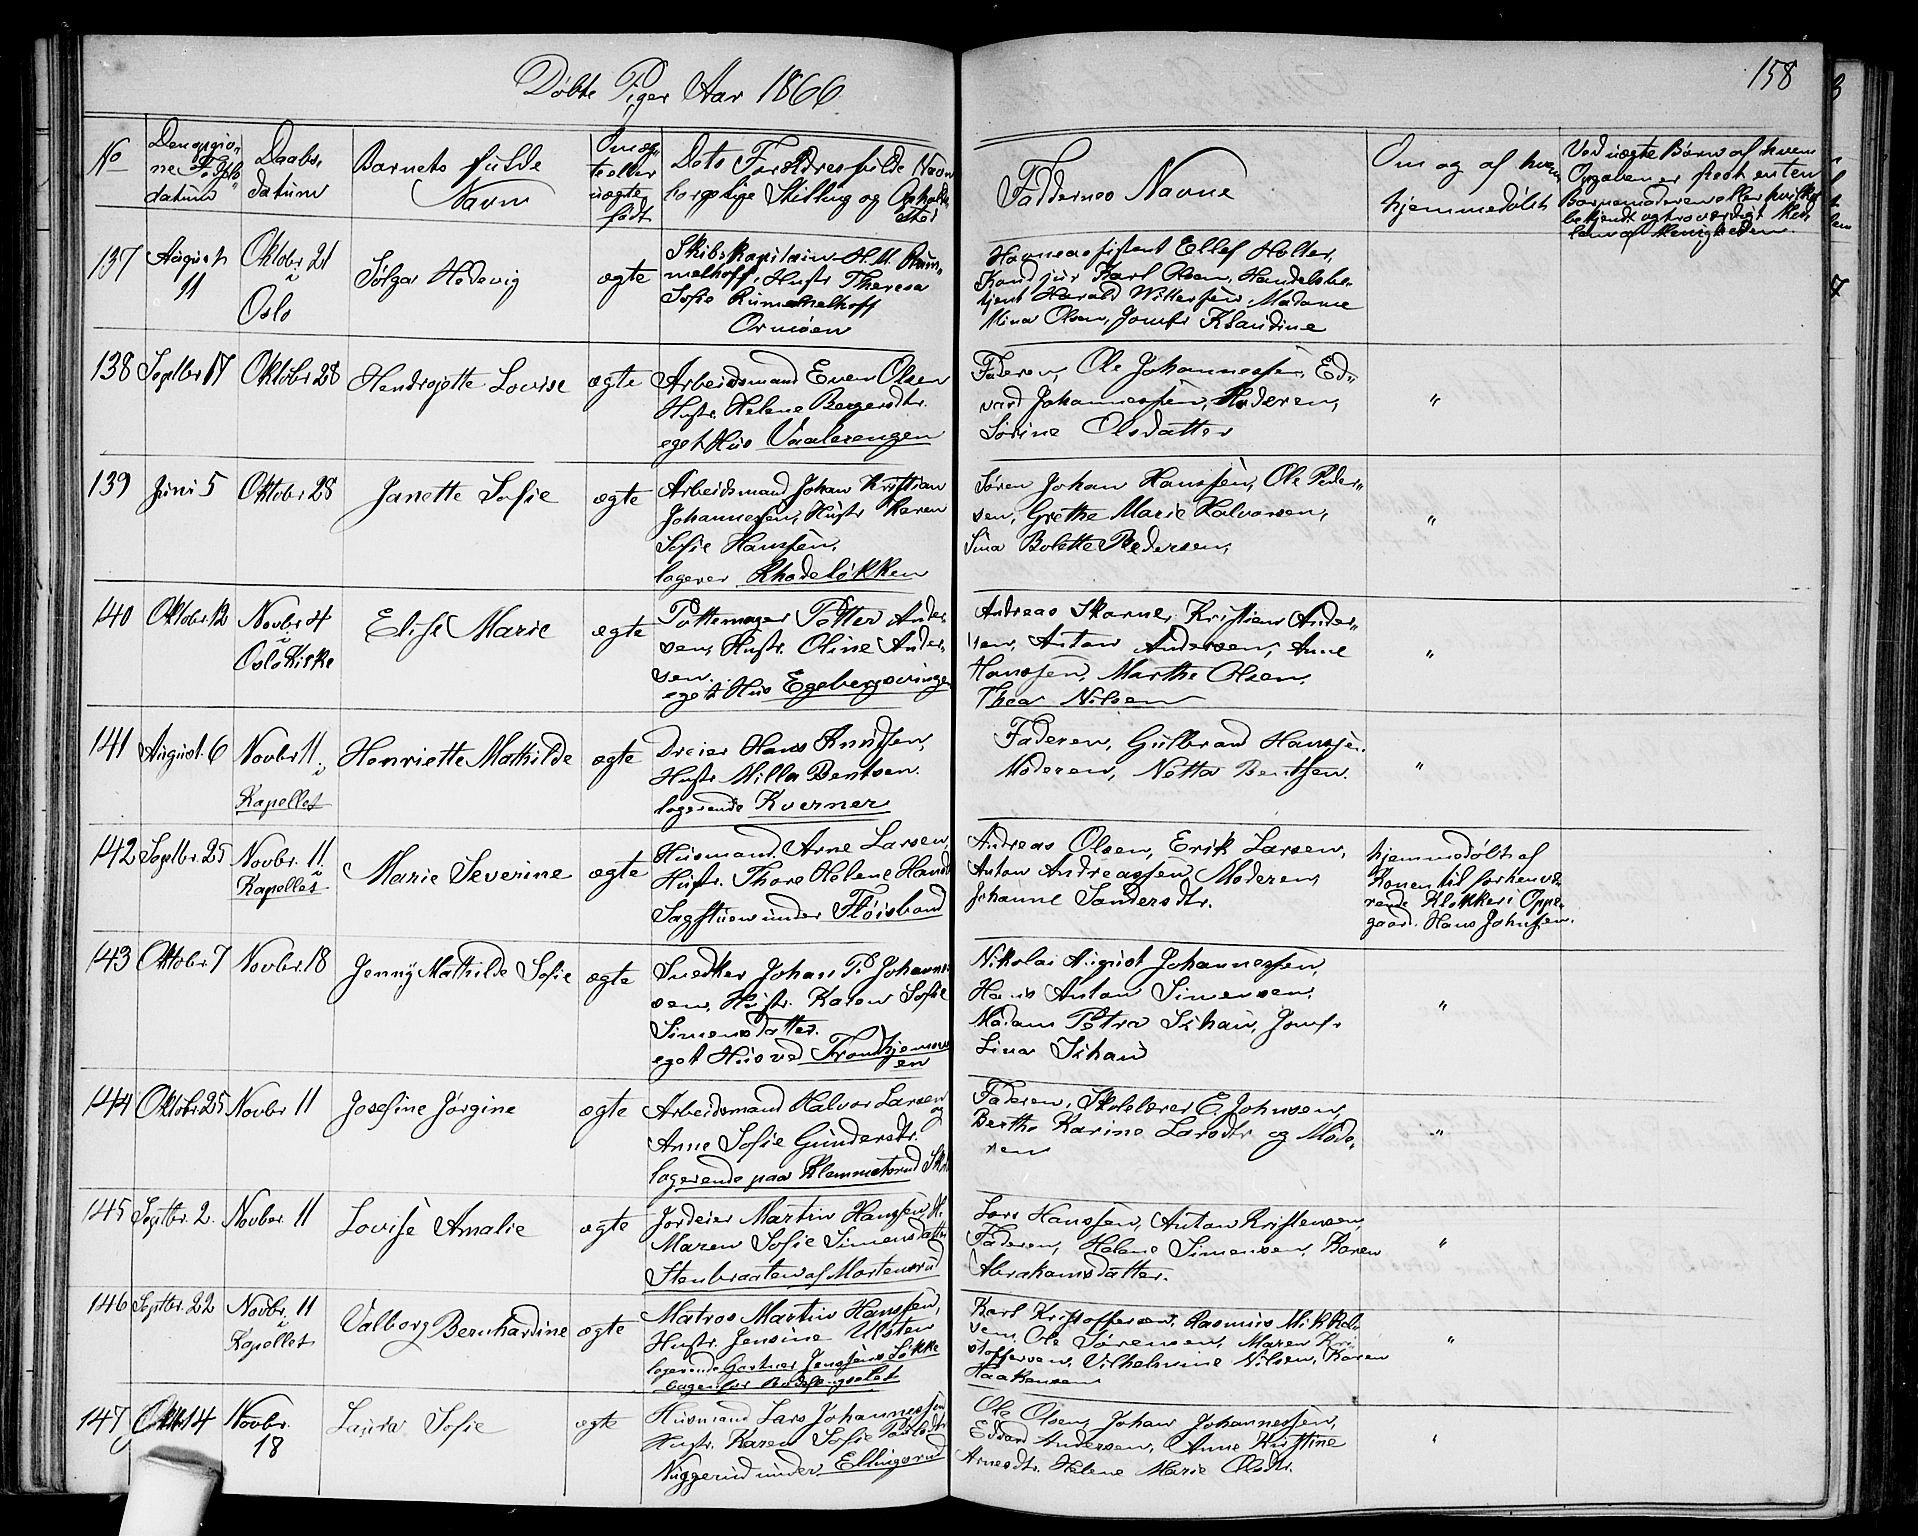 Døbte Piger Aar 1866
158
No
Den opgivne Fødselsdatum
Daabsdatum
Barnets fulde Navn
Om ægte eller uægte født
Dets Forældres fulde Navn borgerlige Stilling og Opholdssted
Faddernes Navne
Om og af hvem hjemmedøbt
Ved uægte Børn af hvem
137 August 11
Oktober 21 i Oslo
Solga Hedevig
ægte
Skibskapitain H. M. Rum-
melhoff, Hustr Theresa
Sofie Rummelhoff
Ormøen
Havneassistent Ellef Holter,
Kand jur Karl Olsen, Handelsbe-
tjent Harald Wittersen, Madame
Mina Olsen, Jomfr Klaudine
138 Septbr 17
Oktobr 28
Hendrejette Lovise
ægte
Arbeidsmand Even Olsen
Hustr. Helene Bergersdtr.
eget Hus Vaalerengen
Faderen, Ole Johannessen, Ed-
vard Johannessen, Moderen,
Sørine Olsdatter
"
139 Juni 5
Oktobr 28
Janette Sofie
ægte
Arbeidsmand Johan Kristian
Johannessen, Hustr Karen
Sofie Hanssen,
lagerer Rhodeløkken
Søren Johan Hanssen, Ole Peder-
sen, Grethe Marie Halvorsen,
Sina Bolette Pedersen,
"
140 Oktobr. 12
Novbr 4 i Oslo Kirke
Elise Marie
ægte
Pottemager Petter Ander-
sen, Hustr. Oline Ander-
sen.
eget Hus Egebergsvingen
Andreas Skarne, Kristian Ander-
sen, Anton Andersen, Anne
Hanssen, Marthe Olsen,
Thea Nilsen
"
141 August 6
Novbr 11 i Kapellet
Henriette Mathilde
ægte
Dreier Hans Knudsen,
Hustr Milla Bentsen.
lagerende Kverner
Faderen, Gulbrand Hanssen
Moderen, Netta Bentsen.
"
142 Septbr. 25
Novbr. 11 i Kapellet
Marie Severine
ægte
Husmand Arne Larsen,
Hustr. Thore Helene Hansd
Sagstuen under Fløisbond
Andreas Olsen, Erik Larsen,
Anton Andreassen, Moderen,
Johanne Sandersdtr.
hjemmedøbt af
Konen til forhenvæ-
rende Klokker i Oppe-
gaard. Hans Johnsen.
143 Oktobr. 7
Novbr. 18
Jenny Mathilde Sofie
ægte
Snedker Johan P. Johannes-
sen, Hustr. Karen Sofie
Simensdatter.
eget Hus ved Trondhjemsvei-
en
Nikolai August Johannessen,
Hans Anton Simensen,
Madam Petra Schau, Jomfr
Lina Schau
"
144 Oktobr 25
Novbr 11
Josefine Jørgine
ægte
Arbeidsmand Halvor Larsen
og
Anne Sofie Gundersdtr.
lagerende paa Klemmetsrud Skole
Faderen, Skolelærer E. Johnsen,
Berthe Karine Larsdtr og Mode-
ren
"
145 Septbr. 2.
Novber. 11
Lovise Amalie
ægte
Jordeier Martin Hanssen, H.
Maren Sofie Simensdatter
Stenbraaten af Mortensrud
Lars Hanssen, Anton Kristensen,
Faderen, Helene Simensen, Karen
Abrahamsdatter.
"
146 Septbr. 22
Novbr. 11 i Kapellet
Valborg Bernhardine
ægte
Matros Martin Hanssen,
Hustr. Jensine Ulsten
lagerende Gartner Jenssens Løkke
bagenfor Bodsfengselet
Karl Kristoffersen, Rasmus Mikkel-
sen, Ole Sørensen, Maren Kri-
stoffersen, Vilhelmine Nilsen, Karen
Haakensen
"
147 Oktbr 14
Novbr. 18
Laura Sofie
ægte
Husmand Lars Johannessen
Hustr. Karen Sofie
Niggerud under Ellingsrud
Ole Olsen, Johan Johannessen,
Edvard Andersen, Anne Kristine
Arnesdtr. Helene Marie Olsdtr.
"